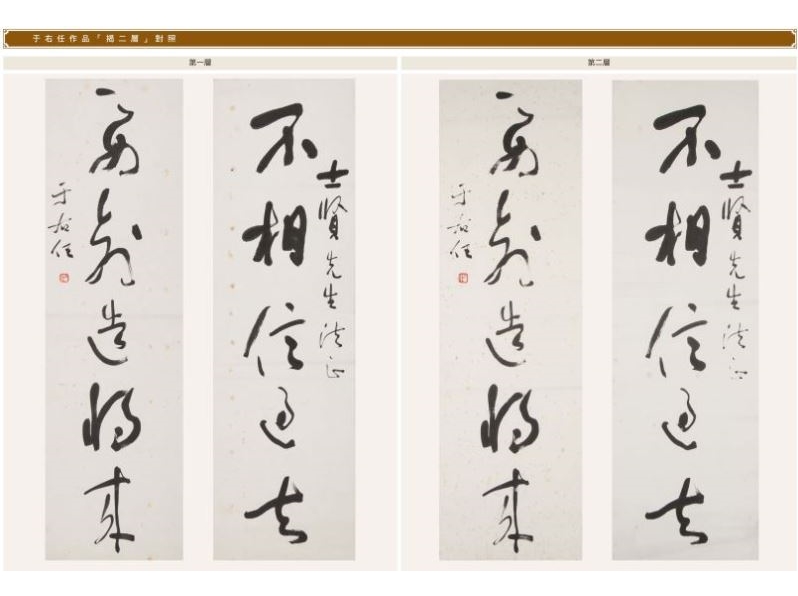 于右任作品「揭二層」對照
第一層
士賢先生法正
不相信過去
要創造將來
于右任
第二層
士賢先生法正
不相信過去
要創造將來
于右任